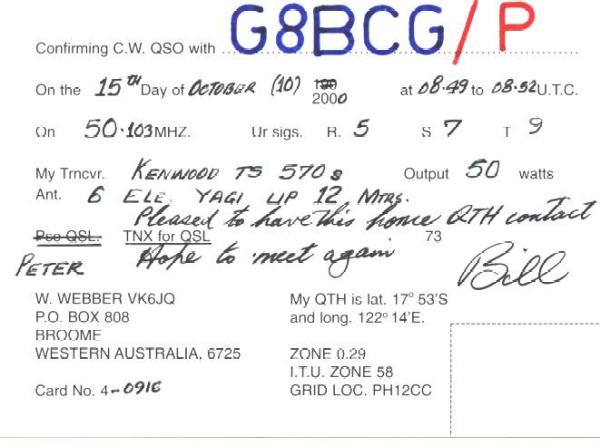 Confirming C.W. QSO with G8BCG/P
On the 15TH Day of OCTOBER (10) 199 2000 at 08.49 to 08.52 U.T.C.
On 50.103 MHZ. Ur sigs. R. 5 S 7 T 9
My Trncvr. KENWOOD TS 570s Output 50 watts
Ant. 6 ELE. YAGI UP 12 MTRS.
Pleased to have this home QTH contact
Pse QSL. TNX for QSL 73
PETER Hope to meet again Bill
W. WEBBER VK6JQ
P.O. BOX 808
BROOME
WESTERN AUSTRALIA, 6725
Card No. 4-0916
My QTH is lat. 17° 53'S
and long. 122° 14'E.
ZONE 0.29
I.T.U. ZONE 58
GRID LOC. PH12CC